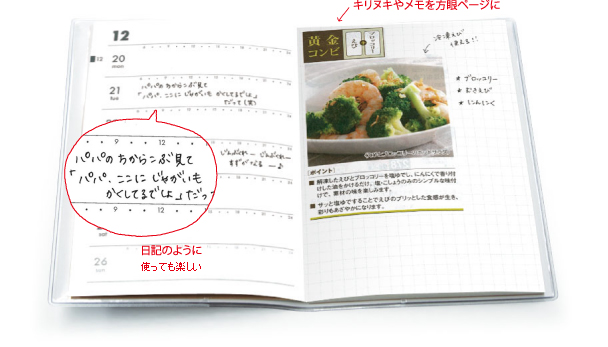 キリヌキやメモを方眼ページに
12
20
21
パパのちからこぶ見て
「パパ、ここにじゃがいも
かくしてるでしょ」
だって(笑)
9 12
パパのちからこぶ見て
「パパ、ここにじゃがいも
かくしてるでしょ」だっ
9 12
日記のように
使っても楽しい
26
黄金
コンビ
えび
ブロッコリー
冷凍えび
使える!!
★ ブロッコリー
★ むきえび
★ にんにく
ポイント
■ 解凍したえびとブロッコリーを塩ゆでし、にんにくで香り付
けした油をかけるだけ。塩・こしょうのみのシンプルな味付
けで、素材の味を楽しみます。
■ サッと塩ゆですることでえびのプリッとした食感が生き、
彩りもあざやかになります。